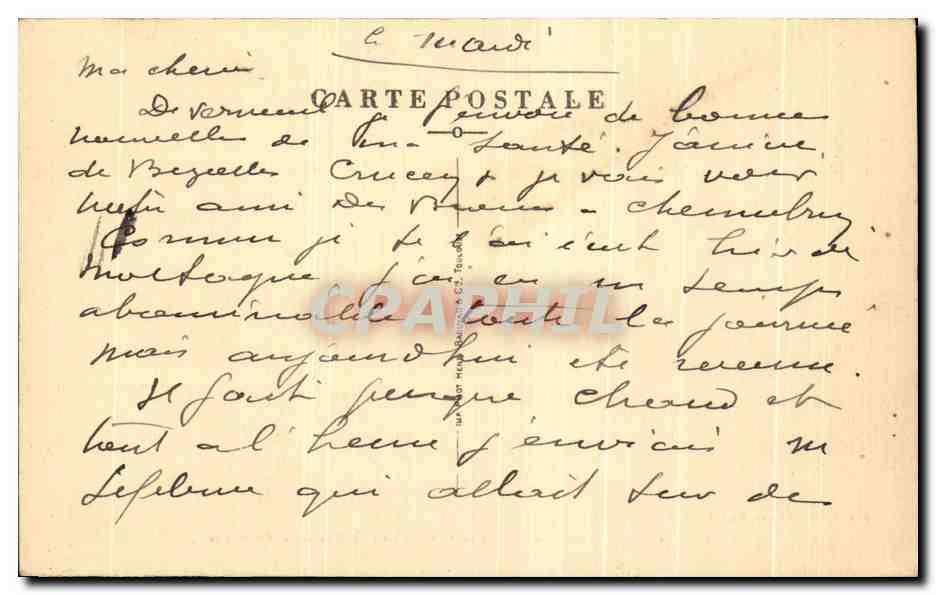 le Mardi
Ma cherie
CARTE POSTALE
De Verneuil je t'envoie de bonnes
nouvelles de ma santé. J'arrive
de Bezelles Crucey & je vais voir
notre ami Des à Chennebrun
Comme je te l'ai écrit hier de
Mortagne, j'ai eu un temps
abominable toute la journée
mais aujourd'hui été revenu.
Il fait presque chaud et
tout à l'heure j'enviais M
Lefebvre qui allait sur de
CPAPHIL